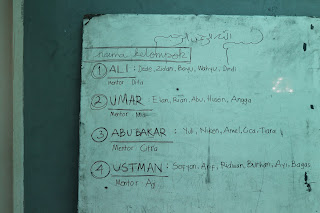 nama kelompok
① ALI : Dede, Zidan, Banyu, Wahyu, Dedi
Mentor : Dita
② UMAR Elan, Rian, Abu, Hasan, Angga
Mentor :
③ ABU BAKAR : Yuli, Niken, Amel, Cica, Tiara
Mentor : Citra
④ USTMAN : Sofyan, Arif, Ridwan, Burhan, Ayi, Bagas
Mentor : Ag